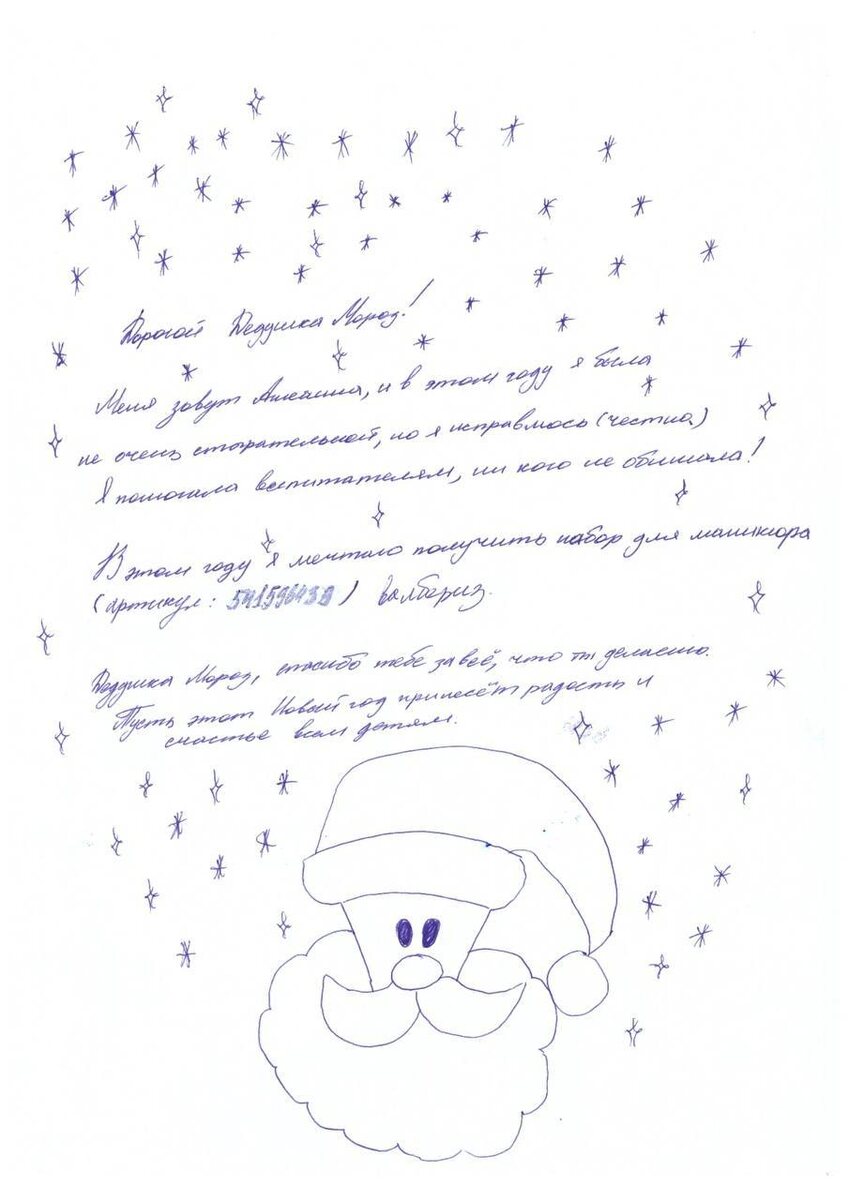 Дорогой Дедушка Мороз!
Меня зовут и в этом году я была
не очень старательной, но я исправлюсь (честно)
Я помогала воспитателям, ни кого не обижала!
В этом году я мечтаю получить набор для маникюра
(артикул: ) Валбериз.
Дедушка Мороз, спасибо тебе за всё, что ты делаешь.
Пусть этот Новый год принесёт радость и
счастье всем детям.